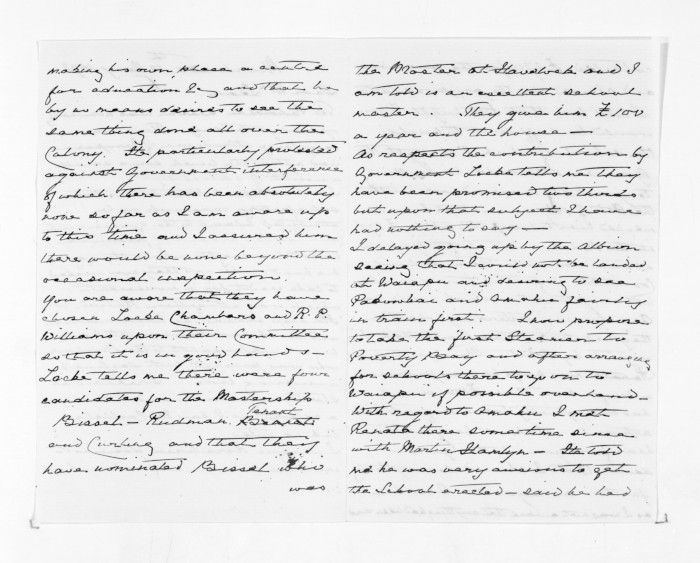 making his own place a centre
for education &c, and that he
by no means desires to see the
same thing done all over the
Colony. He particularly protested
against Government interference
of which there has been absolutely
none so far as I am aware up
to this time and I assured him
there would be none beyond the
occasional inspection.
You are aware that they have
chosen Locke Chambers and R. P.
Williams upon their Committee
so that it is in good hands –
Locke tells me there were four
candidates for the Mastership
Bissel – Rudman Tenant
and Curling and that they
have nominated Bissel who
was
the Master at Havelock and I
am told is an excellent school
master. They give him £100
a year and the house –
As respects the contribution by
Government Locke tells me they
have been promised two thirds
but upon that subject I have
had nothing to say –
I delayed going up by the Albion
seeing that I could not be landed
at Waiapu and desiring to see
Pakowhai and Omahu fairly
in train first. I now propose
to take the first Steamer to
Poverty Bay and after arranging
for schools there to go on to
Waiapu if possible overland –
With regard to Omahu I met
Renata there some time since
with Martin Hamlyn – He told
me he was very anxious to get
the School erected – said he had